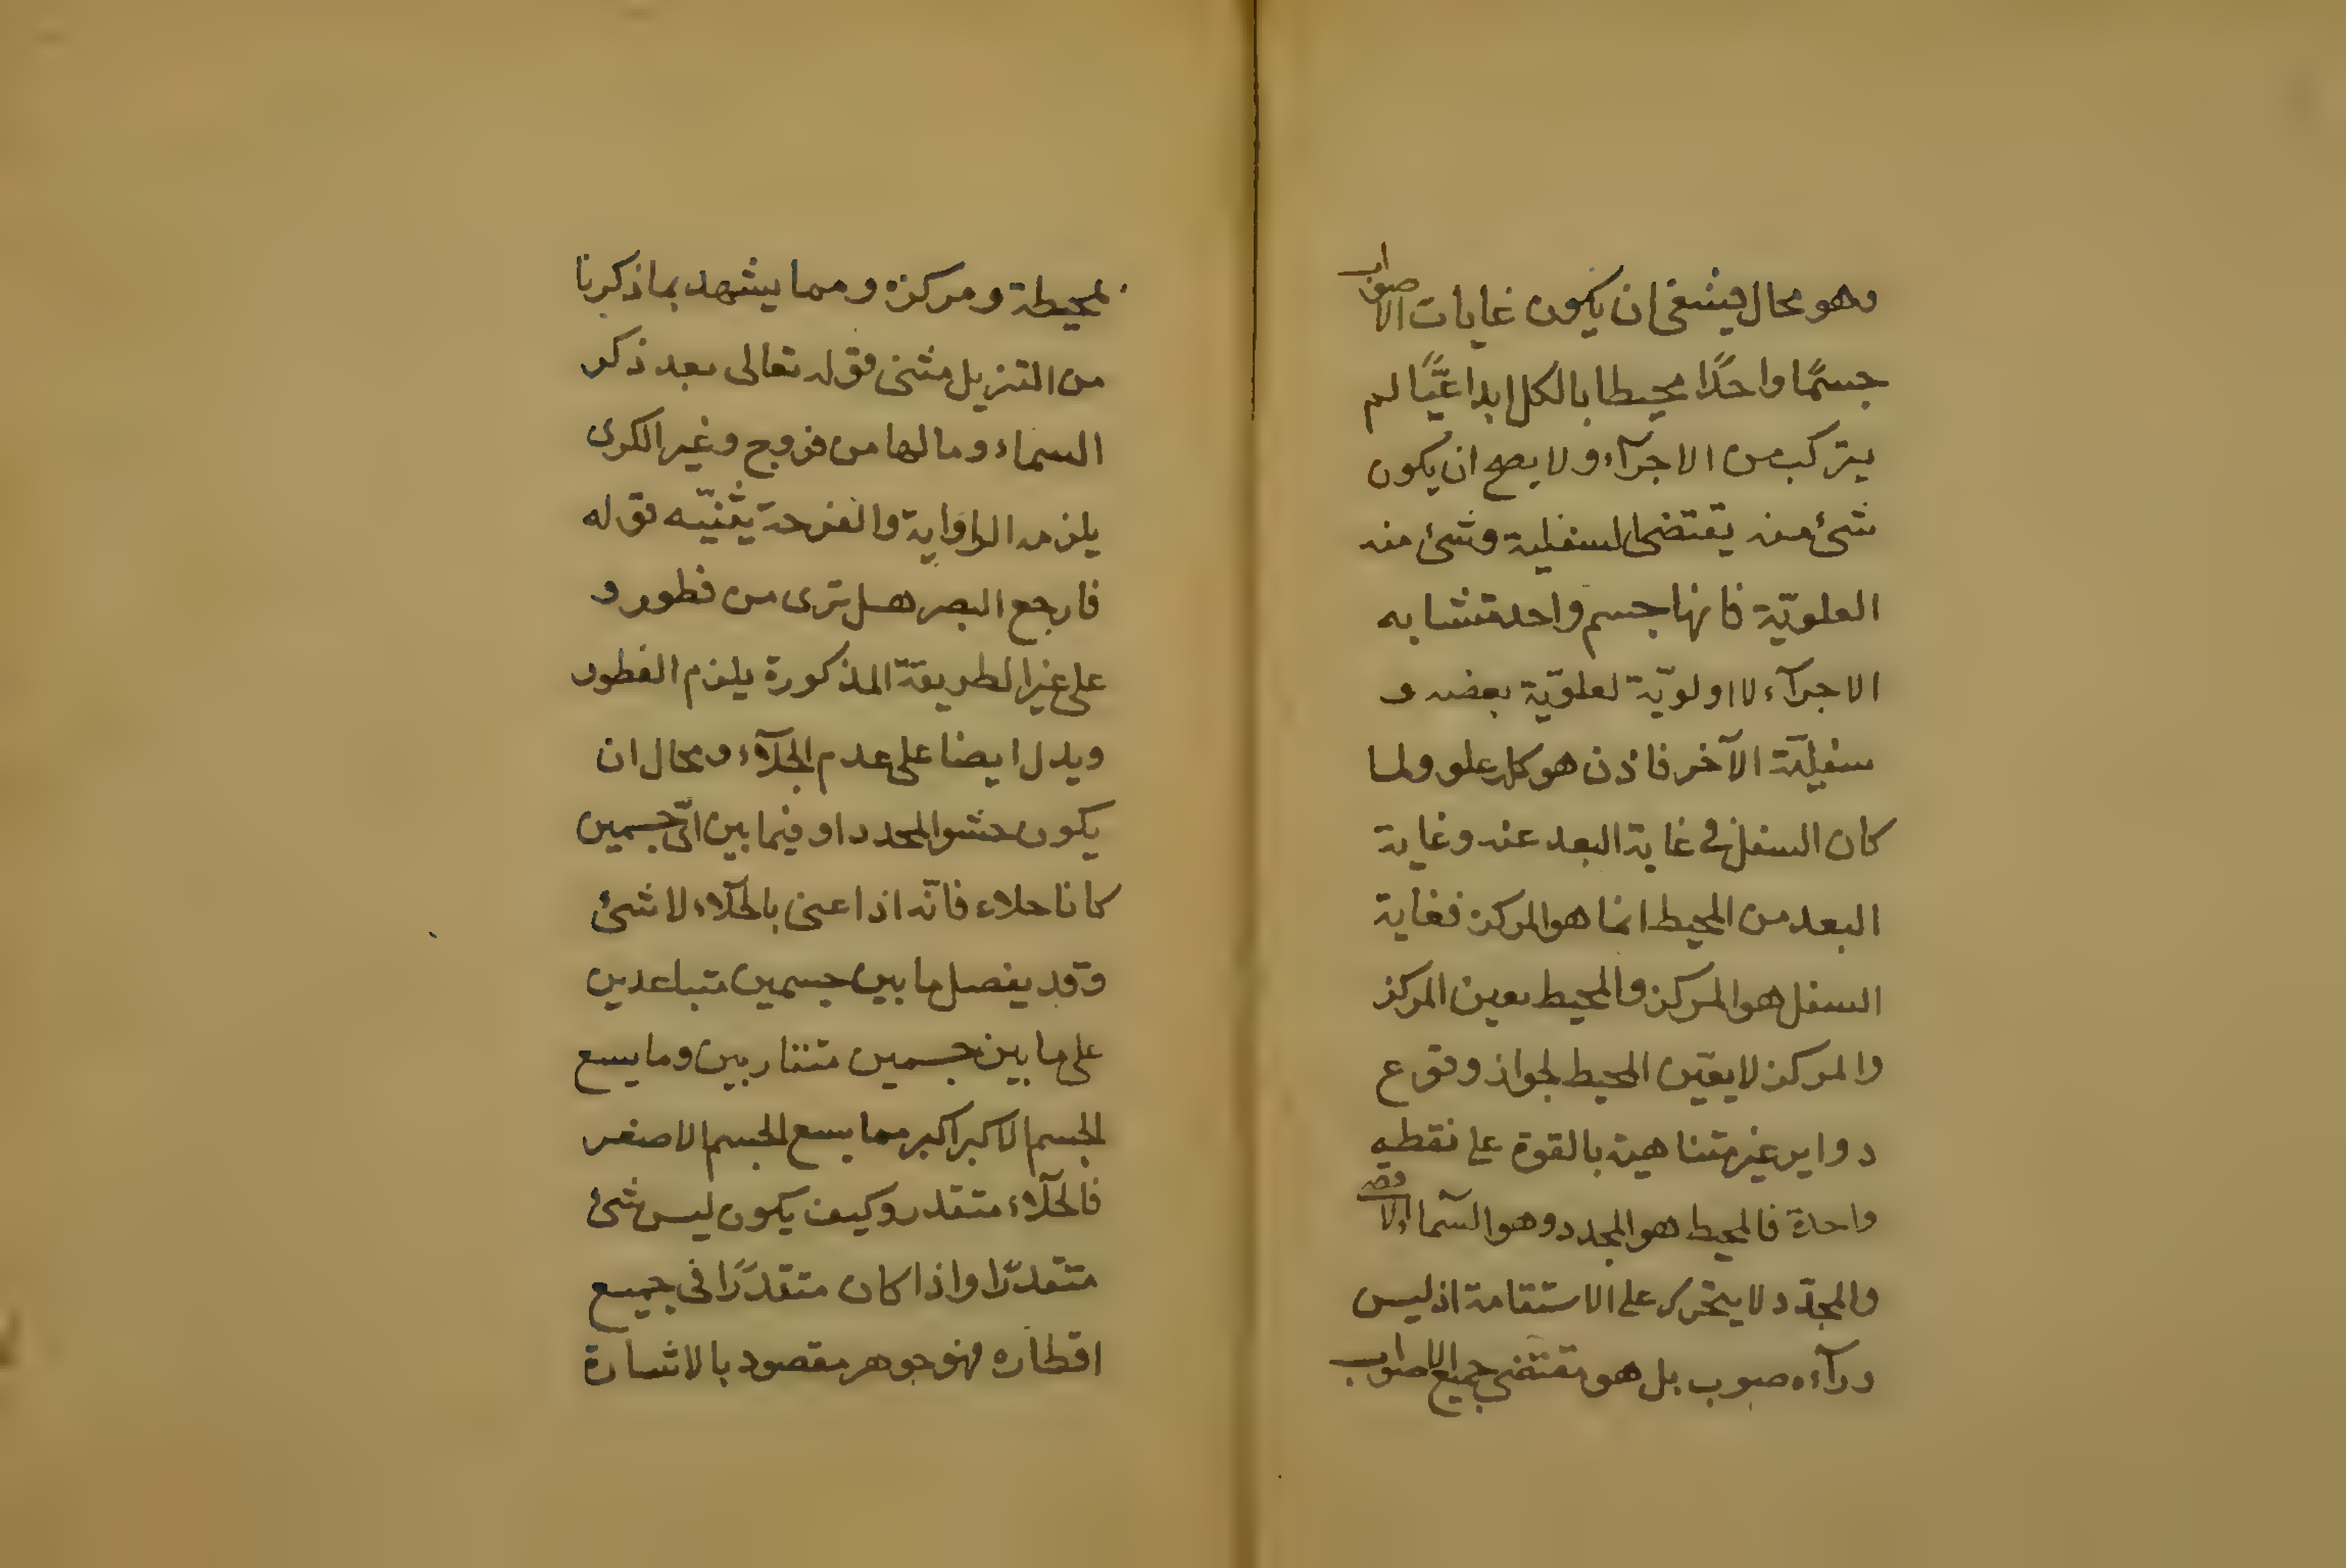 وهو محال فينبغى ان يكون غايات الاصواب
جسمًا واحدًا محيطا بالكل ابداعيًّا لم
يتركب من الاجزآء ولا يصح ان يكون
شئ منه يقتضى السفلية وشئ منه
العلويّة فانها جسم واحد متشابه
الاجزآء لا اولويّة لعلويّة بعضه و
سفليّة الآخر فاذن هو كله علو ولما
كان السفل فى غاية البعد عنه وغاية
البعد من المحيط انما هو المركز فغاية
السفل هو المركز والمحيط يعين المركز
والمركز لا يعيّن المحيط لجواز وقوع
دواير غير متناهية بالقوة على نقطه
واحدة فالمحيط هو المحدد وهو السّماء الاقصى
والمحدّد لا يتحرك على الاستقامة اذ ليس
ورآءه صوب بل هو مقتضى جميع الاصواب
لمحيطة ومركزه ومما يشهد بما ذكرنا
من التنزيل مثنى قوله تعالى بعد ذكر
السماء وما لها من فروج وغير الكرى
يلزمه الزاوية والفرجة يثنيّه قوله
فارجع البصر هل ترى من فطور و
على غير الطريقة المذكورة يلزم الفطور
ويدل ايضا على عدم الخلآء ومحال ان
يكون حشو المحدد او فيما بين اىّ جسمين
كانا خلاء فانّه اذا عنى بالخلآء لا شئ
وقد يفضل ما بين جسمين متباعدين
على ما بين جسمين متقاربين وما يسع
الجسم الاكبر اكبر مما يسع الجسم الاصغر
فالخلآء متقدر وكيف يكون ليس شئ
متقدرًا واذا كان متقدرًا فى جميع
اقطاره فهو جوهر مقصود بالاشارة